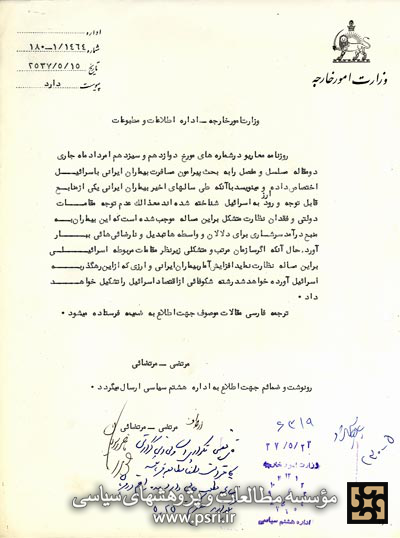 وزارت امور خارجه
اداره
شماره ۱۸۰۰-۱/۱۴۶۴
تاریخ ۲۵۳۷/۵/۱۵
پیوست دارد
وزارت امور خارجه – اداره اطلاعات و مطبوعات
روزنامه معاریو در شماره های مورخ دوازدهم و سیزدهم امرداد ماه جاری
دو مقاله مسلسل و مفصل را به بحث پیرامون مسافرت بیماران ایرانی باسرائیل
اختصاص داده و مینویسد با آنکه طی سالهای اخیر بیماران ایرانی یکی از منابع
قابل توجه ورود ارز به اسرائیل شناخته شده اند معذالک عدم توجه مقامات
دولتی و فقدان نظارت متشکل بر این مساله موجب شده است که این بیماران به
منبع درآمد سرشاری برای دلالان و واسطه ها تبدیل و نارضائی هائی ببار
آورد. حال آنکه اگر سازمان مرتب و متشکلی زیر نظر مقامات مربوطه اسرائیلی
بر این مساله نظارت نماید افزایش آمار بیماران ایرانی و ارزی که از این رهگذر به
اسرائیل آورده خواهد شد رشته شکوفائی از اقتصاد اسرائیل را تشکیل خواهد
داد.
ترجمه فارسی مقالات موصوف جهت اطلاع به ضمیمه فرستاده میشود.
مرتضی – مرتضائی
رونوشت و ضمائم جهت اطلاع به اداره هشتم سیاسی ارسال میگردد.
مرتضی – مرتضائی
۶۳۱۹
۳۷/۵/۲۲
وزارت امور خارجه
اداره هشتم سیاسی
مؤسسه مطالعات و پژوهشهای سیاسی
www.psri.ir